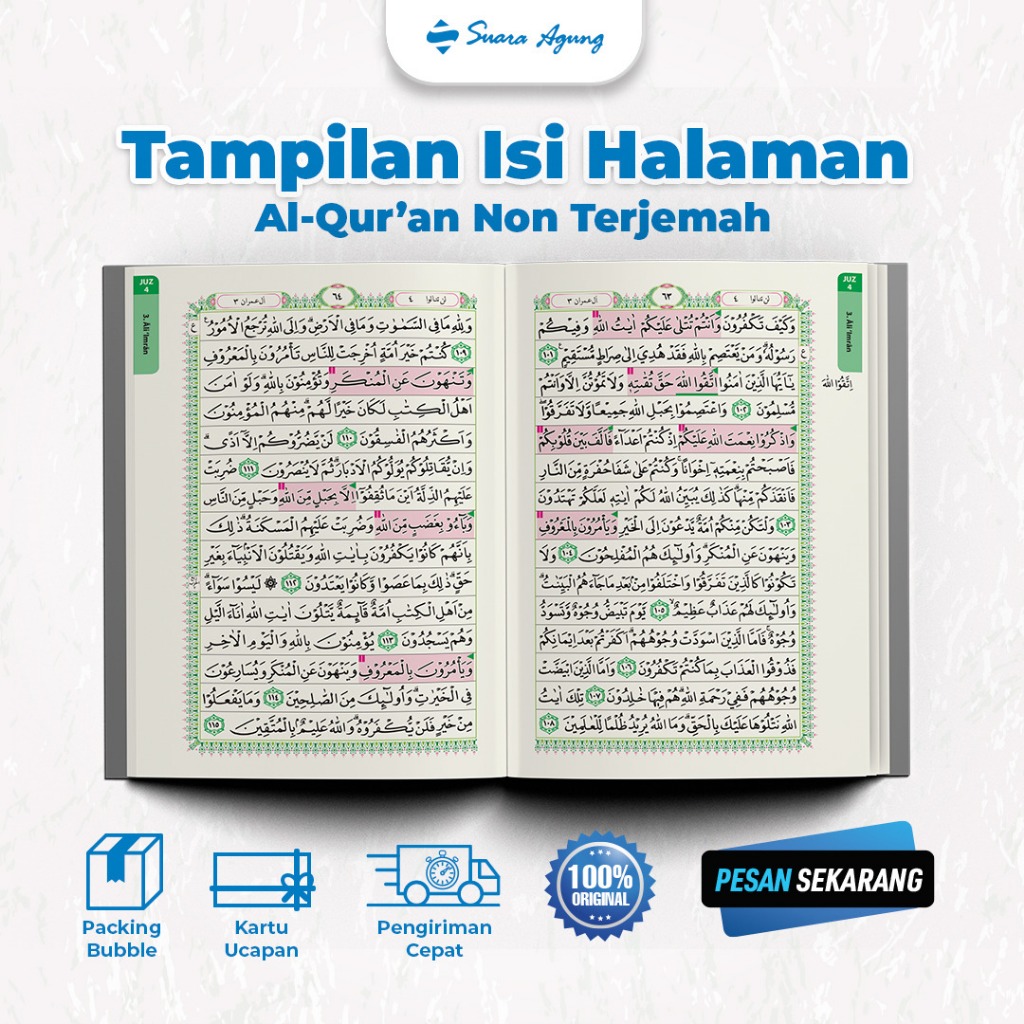 Suara Agung
Tampilan Isi Halaman
Al-Qur'an Non Terjemah
JUZ 4
3. Āli 'Imrān
اِتَّقُوا اللّٰهَ
لن تنالوا ٤ ٦٣ اٰل عمران ٣
وَكَيْفَ تَكْفُرُوْنَ وَاَنْتُمْ تُتْلٰى عَلَيْكُمْ اٰيٰتُ اللّٰهِ وَفِيْكُمْ
رَسُوْلُهٗ ۗ وَمَنْ يَّعْتَصِمْ بِاللّٰهِ فَقَدْ هُدِيَ اِلٰى صِرَاطٍ مُّسْتَقِيْمٍ ١٠١
يٰٓاَيُّهَا الَّذِيْنَ اٰمَنُوا اتَّقُوا اللّٰهَ حَقَّ تُقٰىتِهٖ وَلَا تَمُوْتُنَّ اِلَّا وَاَنْتُمْ
مُّسْلِمُوْنَ ١٠٢ وَاعْتَصِمُوْا بِحَبْلِ اللّٰهِ جَمِيْعًا وَّلَا تَفَرَّقُوْا ۖ
وَاذْكُرُوْا نِعْمَتَ اللّٰهِ عَلَيْكُمْ اِذْ كُنْتُمْ اَعْدَاۤءً فَاَلَّفَ بَيْنَ قُلُوْبِكُمْ
فَاَصْبَحْتُمْ بِنِعْمَتِهٖٓ اِخْوَانًا ۚ وَكُنْتُمْ عَلٰى شَفَا حُفْرَةٍ مِّنَ النَّارِ
فَاَنْقَذَكُمْ مِّنْهَا ۗ كَذٰلِكَ يُبَيِّنُ اللّٰهُ لَكُمْ اٰيٰتِهٖ لَعَلَّكُمْ تَهْتَدُوْنَ
١٠٣ وَلْتَكُنْ مِّنْكُمْ اُمَّةٌ يَّدْعُوْنَ اِلَى الْخَيْرِ وَيَأْمُرُوْنَ بِالْمَعْرُوْفِ
وَيَنْهَوْنَ عَنِ الْمُنْكَرِ ۗ وَاُولٰۤىِٕكَ هُمُ الْمُفْلِحُوْنَ ١٠٤ وَلَا
تَكُوْنُوْا كَالَّذِيْنَ تَفَرَّقُوْا وَاخْتَلَفُوْا مِنْۢ بَعْدِ مَا جَاۤءَهُمُ الْبَيِّنٰتُ ۗ
وَاُولٰۤىِٕكَ لَهُمْ عَذَابٌ عَظِيْمٌ ١٠٥ يَّوْمَ تَبْيَضُّ وُجُوْهٌ وَّتَسْوَدُّ
وُجُوْهٌ ۚ فَاَمَّا الَّذِيْنَ اسْوَدَّتْ وُجُوْهُهُمْ اَكَفَرْتُمْ بَعْدَ اِيْمَانِكُمْ
فَذُوْقُوا الْعَذَابَ بِمَا كُنْتُمْ تَكْفُرُوْنَ ١٠٦ وَاَمَّا الَّذِيْنَ ابْيَضَّتْ
وُجُوْهُهُمْ فَفِيْ رَحْمَةِ اللّٰهِ ۗ هُمْ فِيْهَا خٰلِدُوْنَ ١٠٧ تِلْكَ اٰيٰتُ
اللّٰهِ نَتْلُوْهَا عَلَيْكَ بِالْحَقِّ ۗ وَمَا اللّٰهُ يُرِيْدُ ظُلْمًا لِّلْعٰلَمِيْنَ ١٠٨
JUZ 4
3. Āli 'Imrān
لن تنالوا ٤ ٦٤ اٰل عمران ٣
وَلِلّٰهِ مَا فِى السَّمٰوٰتِ وَمَا فِى الْاَرْضِ ۗ وَاِلَى اللّٰهِ تُرْجَعُ الْاُمُوْرُ
١٠٩ كُنْتُمْ خَيْرَ اُمَّةٍ اُخْرِجَتْ لِلنَّاسِ تَأْمُرُوْنَ بِالْمَعْرُوْفِ
وَتَنْهَوْنَ عَنِ الْمُنْكَرِ وَتُؤْمِنُوْنَ بِاللّٰهِ ۗ وَلَوْ اٰمَنَ
اَهْلُ الْكِتٰبِ لَكَانَ خَيْرًا لَّهُمْ ۗ مِنْهُمُ الْمُؤْمِنُوْنَ
وَاَكْثَرُهُمُ الْفٰسِقُوْنَ ١١٠ لَنْ يَّضُرُّوْكُمْ اِلَّآ اَذًى ۗ
وَاِنْ يُّقَاتِلُوْكُمْ يُوَلُّوْكُمُ الْاَدْبَارَ ۗ ثُمَّ لَا يُنْصَرُوْنَ ١١١ ضُرِبَتْ
عَلَيْهِمُ الذِّلَّةُ اَيْنَ مَا ثُقِفُوْٓا اِلَّا بِحَبْلٍ مِّنَ اللّٰهِ وَحَبْلٍ مِّنَ النَّاسِ
وَبَاۤءُوْ بِغَضَبٍ مِّنَ اللّٰهِ وَضُرِبَتْ عَلَيْهِمُ الْمَسْكَنَةُ ۗ ذٰلِكَ
بِاَنَّهُمْ كَانُوْا يَكْفُرُوْنَ بِاٰيٰتِ اللّٰهِ وَيَقْتُلُوْنَ الْاَنْۢبِيَاۤءَ بِغَيْرِ
حَقٍّ ۗ ذٰلِكَ بِمَا عَصَوْا وَّكَانُوْا يَعْتَدُوْنَ ١١٢ ۞ لَيْسُوْا سَوَاۤءً ۗ
مِنْ اَهْلِ الْكِتٰبِ اُمَّةٌ قَاۤىِٕمَةٌ يَّتْلُوْنَ اٰيٰتِ اللّٰهِ اٰنَاۤءَ الَّيْلِ
وَهُمْ يَسْجُدُوْنَ ١١٣ يُؤْمِنُوْنَ بِاللّٰهِ وَالْيَوْمِ الْاٰخِرِ
وَيَأْمُرُوْنَ بِالْمَعْرُوْفِ وَيَنْهَوْنَ عَنِ الْمُنْكَرِ وَيُسَارِعُوْنَ
فِى الْخَيْرٰتِ ۗ وَاُولٰۤىِٕكَ مِنَ الصّٰلِحِيْنَ ١١٤ وَمَا يَفْعَلُوْا
مِنْ خَيْرٍ فَلَنْ يُّكْفَرُوْهُ ۗ وَاللّٰهُ عَلِيْمٌۢ بِالْمُتَّقِيْنَ ١١٥
Packing
Bubble
Kartu
Ucapan
Pengiriman
Cepat
100%
ORIGINAL
PESAN SEKARANG